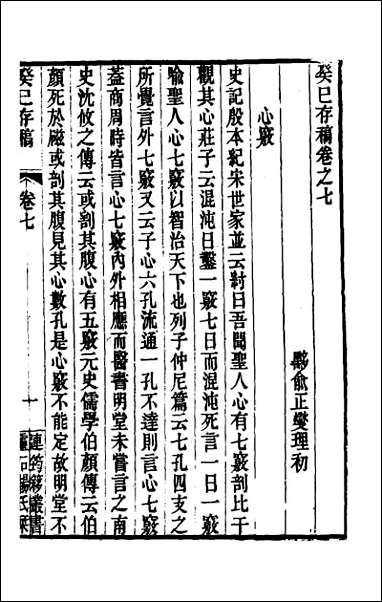 癸巳存稿卷之七
黟俞正燮理初
心竅
史記殷本紀宋世家並云紂曰吾聞聖人心有七竅剖比干
觀其心莊子云混沌日鑿一竅七日而混沌死言一日一竅
喻聖人心七竅以智治天下也列子仲尼篇云七孔四支之
所覺言外七竅又云子心六孔流通一孔不達則言心七竅
蓋商周時皆言心七竅內外相應而醫書明堂未嘗言之南
史沈攸之傳云或割其腹心有五竅元史儒學伯顏傳云伯
顏死於磁或剖其腹見其心數孔是心竅不能定故明堂不
癸巳存稿
卷七
一
連筠簃叢書
靈石楊氏栞